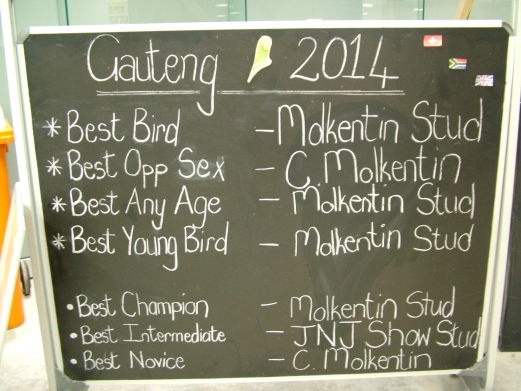 Gauteng 2014
* Best Bird - Molkentin Stud
* Best Opp Sex - C. Molkentin
* Best Any Age - Molkentin Stud
* Best Young Bird - Molkentin Stud
• Best Champion - Molkentin Stud
• Best Intermediate - JNJ Show Stud
• Best Novice - C. Molkentin